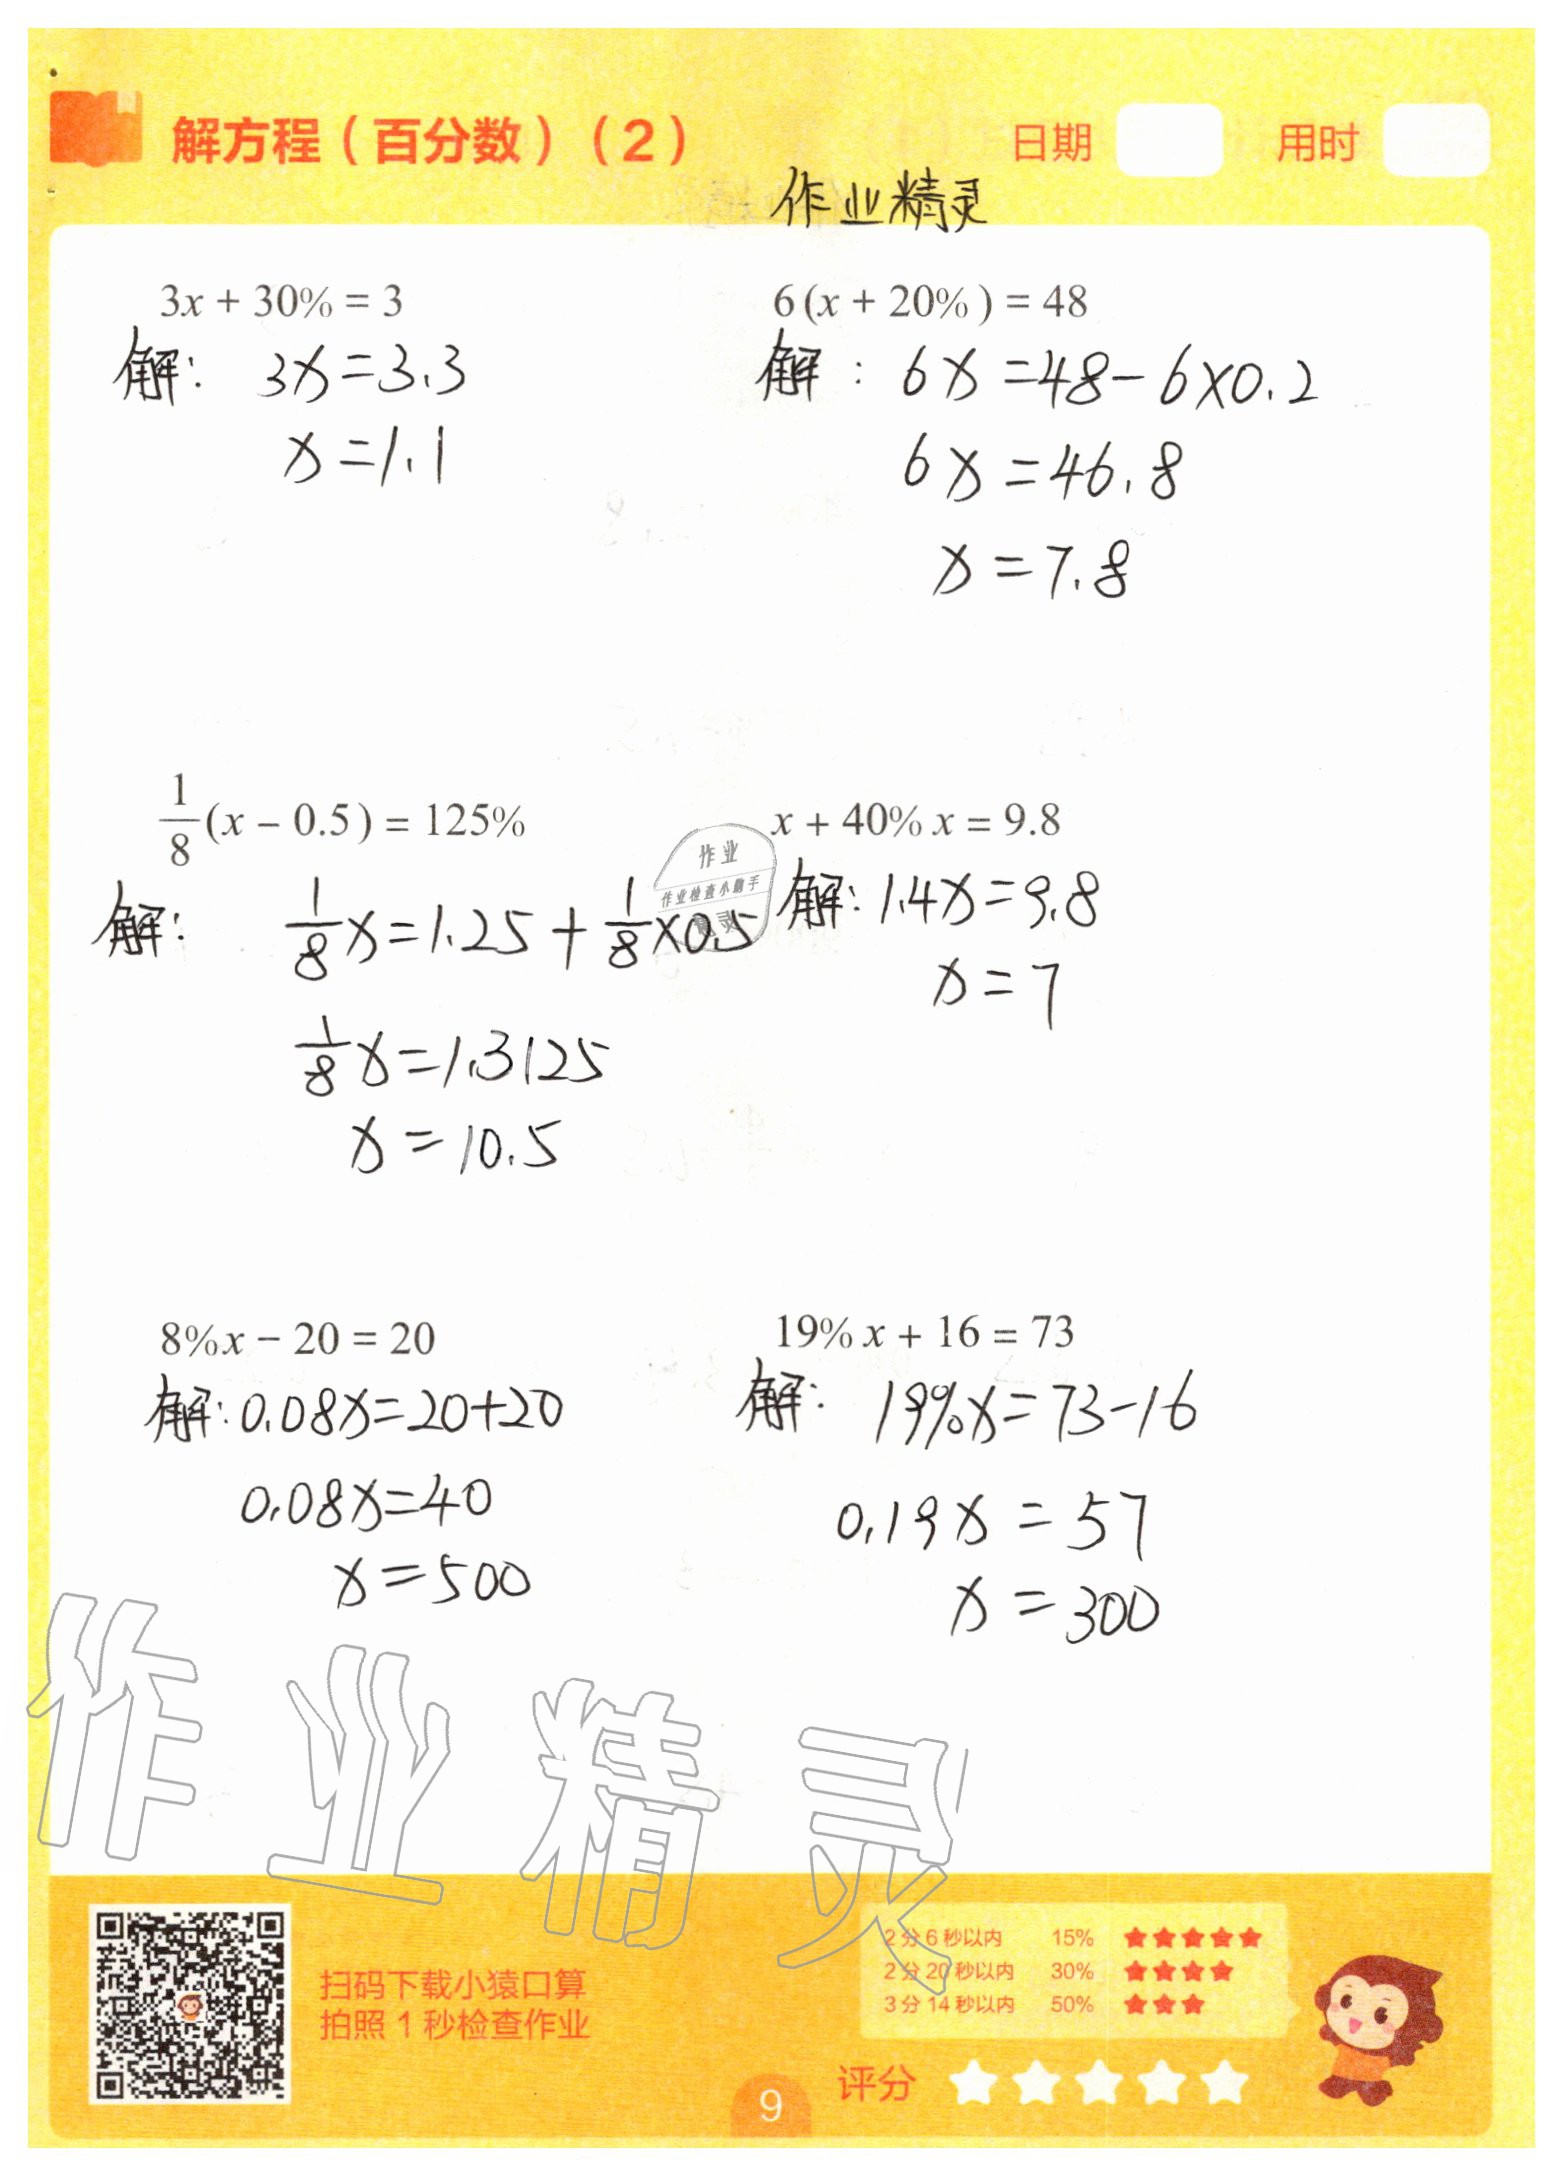 解方程（百分数）（2） 日期 用时
作业精灵
3x + 30% = 3
解: 3x=3.3
x=1.1
6(x + 20%) = 48
解: 6x=48-6×0.2
6x=46.8
x=7.8
1/8(x - 0.5) = 125%
解: 1/8x=1.25+1/8×0.5
1/8x=1.3125
x=10.5
作业
作业检查小助手
精灵
x + 40% x = 9.8
解: 1.4x=9.8
x=7
8%x - 20 = 20
解: 0.08x=20+20
0.08x=40
x=500
19% x + 16 = 73
解: 19%x=73-16
0.19x=57
x=300
作业精灵
扫码下载小猿口算
拍照1秒检查作业
2分6秒以内 15% ★★★★★
2分20秒以内 30% ★★★★
3分14秒以内 50% ★★★
评分 ☆☆☆☆☆
9